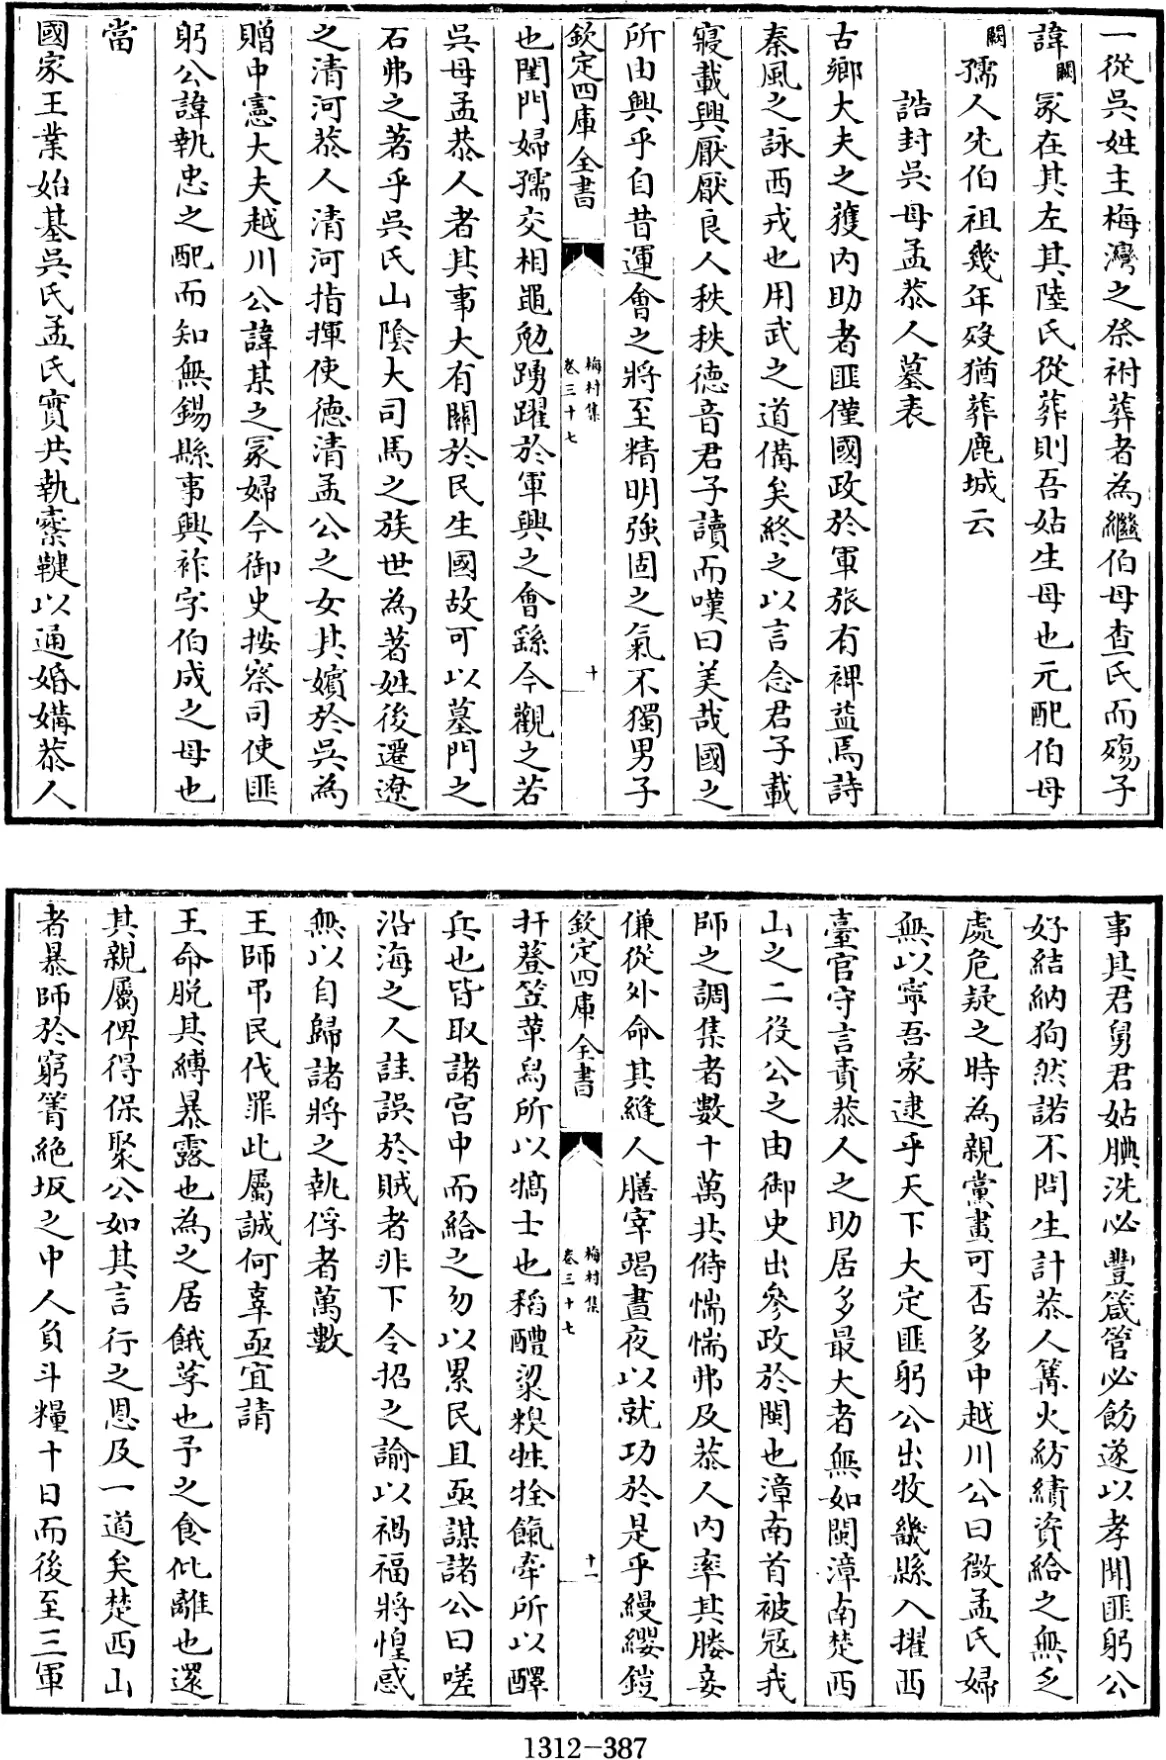 一從吳姓主梅灣之祭祔葬者為繼伯母查氏而殤子
諱闕冢在其左其陸氏從葬則吾姑生母也元配伯母
闕孺人先伯祖幾年歿猶葬鹿城云
誥封吳母孟恭人墓表
古鄉大夫之獲內助者匪僅國政於軍旅有裨益焉詩
秦風之詠西戎也用武之道備矣終之以言念君子載
寢載興厭厭良人秩秩德音君子讀而嘆曰美哉國之
所由興乎自昔運會之將至精明強固之氣不獨男子
欽定四庫全書
梅村集
卷三十七
十
也閨門婦孺交相黽勉踴躍於軍興之會繇今觀之若
吳母孟恭人者其事大有關於民生國故可以墓門之
石弗之著乎吳氏山陰大司馬之族世為著姓後遷遼
之清河恭人清河指揮使德清孟公之女其嬪於吳為
贈中憲大夫越川公諱某之冢婦今御史按察司使匪
躬公諱執忠之配而知無錫縣事興祚字伯成之母也
當
國家王業始基吳氏孟氏實共執櫜鞬以通婚媾恭人
事其君舅君姑腆洗必豐箴管必飭遂以孝聞匪躬公
好結納狥然諾不問生計恭人篝火紡績資給之無乏
處危疑之時為親黨畫可否多中越川公曰微孟氏婦
無以寧吾家逮乎天下大定匪躬公出牧畿縣入擢西
臺官守言責恭人之助居多最大者無如閩漳南楚西
山之二役公之由御史出參政於閩也漳南首被冦我
師之調集者數十萬共偫惴惴弗及恭人內率其媵妾
傔從外命其縫人膳宰竭晝夜以就功於是乎縵纓鎧
欽定四庫全書
梅村集
卷三十七
十一
扞簦笠草舄所以犒士也稻醴粱糗牲牷餼牽所以醳
兵也皆取諸宮中而給之勿以累民且亟謀諸公曰嗟
沿海之人詿誤於賊者非下令招之諭以禍福將惶惑
無以自歸諸將之執俘者萬數
王師弔民伐罪此屬誠何辜亟宜請
王命脫其縛暴露也為之居餓莩也予之食仳離也還
其親屬俾得保聚公如其言行之恩及一道矣楚西山
者暴師於窮箐絕坂之中人負斗糧十日而後至三軍
1312-387